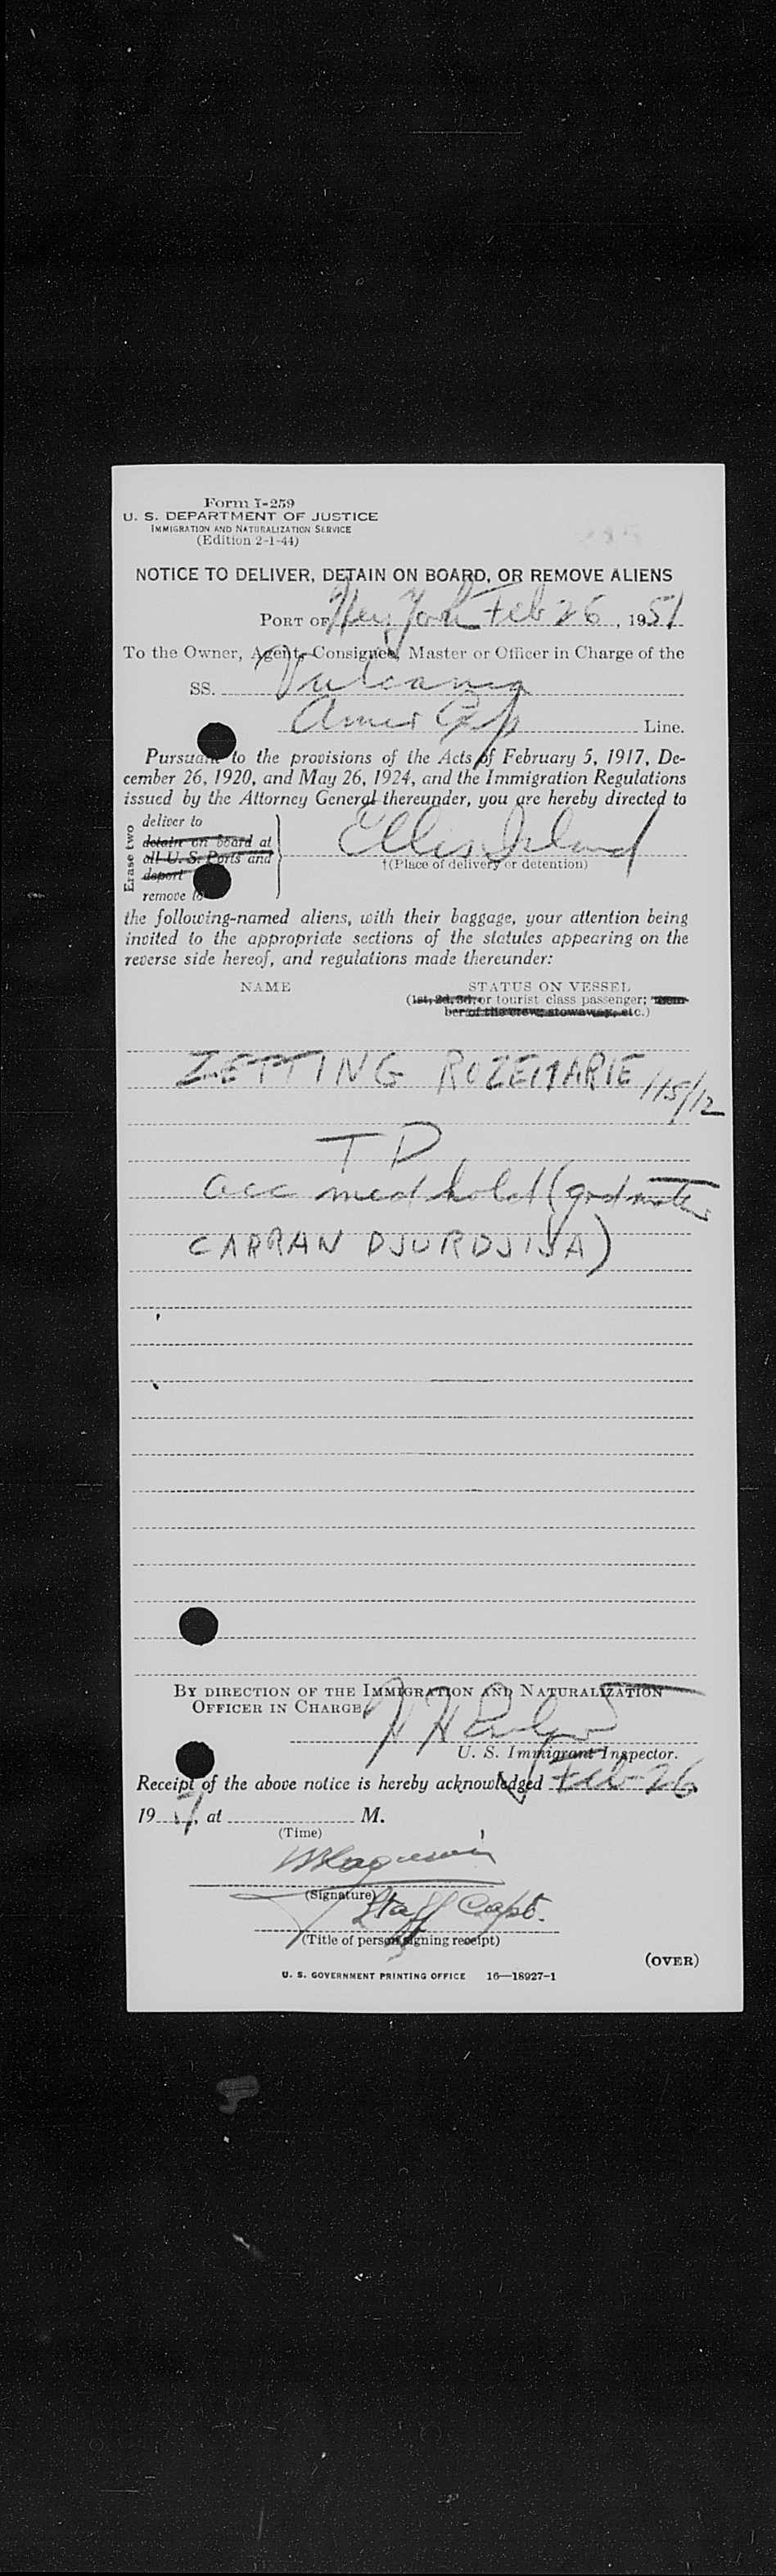 Form I-259
U. S. DEPARTMENT OF JUSTICE
IMMIGRATION AND NATURALIZATION SERVICE
(Edition 2-1-44)
NOTICE TO DELIVER, DETAIN ON BOARD, OR REMOVE ALIENS
PORT OF New York Feb 26, 1951
To the Owner, Agent, Consignee, Master or Officer in Charge of the
SS. Vulcania
Amer Exp Line.
Pursuant to the provisions of the Acts of February 5, 1917, De-
cember 26, 1920, and May 26, 1924, and the Immigration Regulations
issued by the Attorney General thereunder, you are hereby directed to
Erase two
deliver to
detain on board at
all U. S. Ports and
deport
remove to
Ellis Island
†(Place of delivery or detention)
the following-named aliens, with their baggage, your attention being
invited to the appropriate sections of the statutes appearing on the
reverse side hereof, and regulations made thereunder:
NAME STATUS ON VESSEL
(1st, 2d, 3d, or tourist class passenger; mem-
ber of the crew; stowaway, etc.)
ZETTING ROZEMARIE 115/12
TD
acc med hold (godmother
CARRAN DJURDJIJA)
BY DIRECTION OF THE IMMIGRATION AND NATURALIZATION
OFFICER IN CHARGE
U. S. Immigrant Inspector.
Receipt of the above notice is hereby acknowledged Feb 26
1951, at M.
(Time)
(Signature)
Staff Capt.
(Title of person signing receipt)
(OVER)
U. S. GOVERNMENT PRINTING OFFICE 16—18927-1